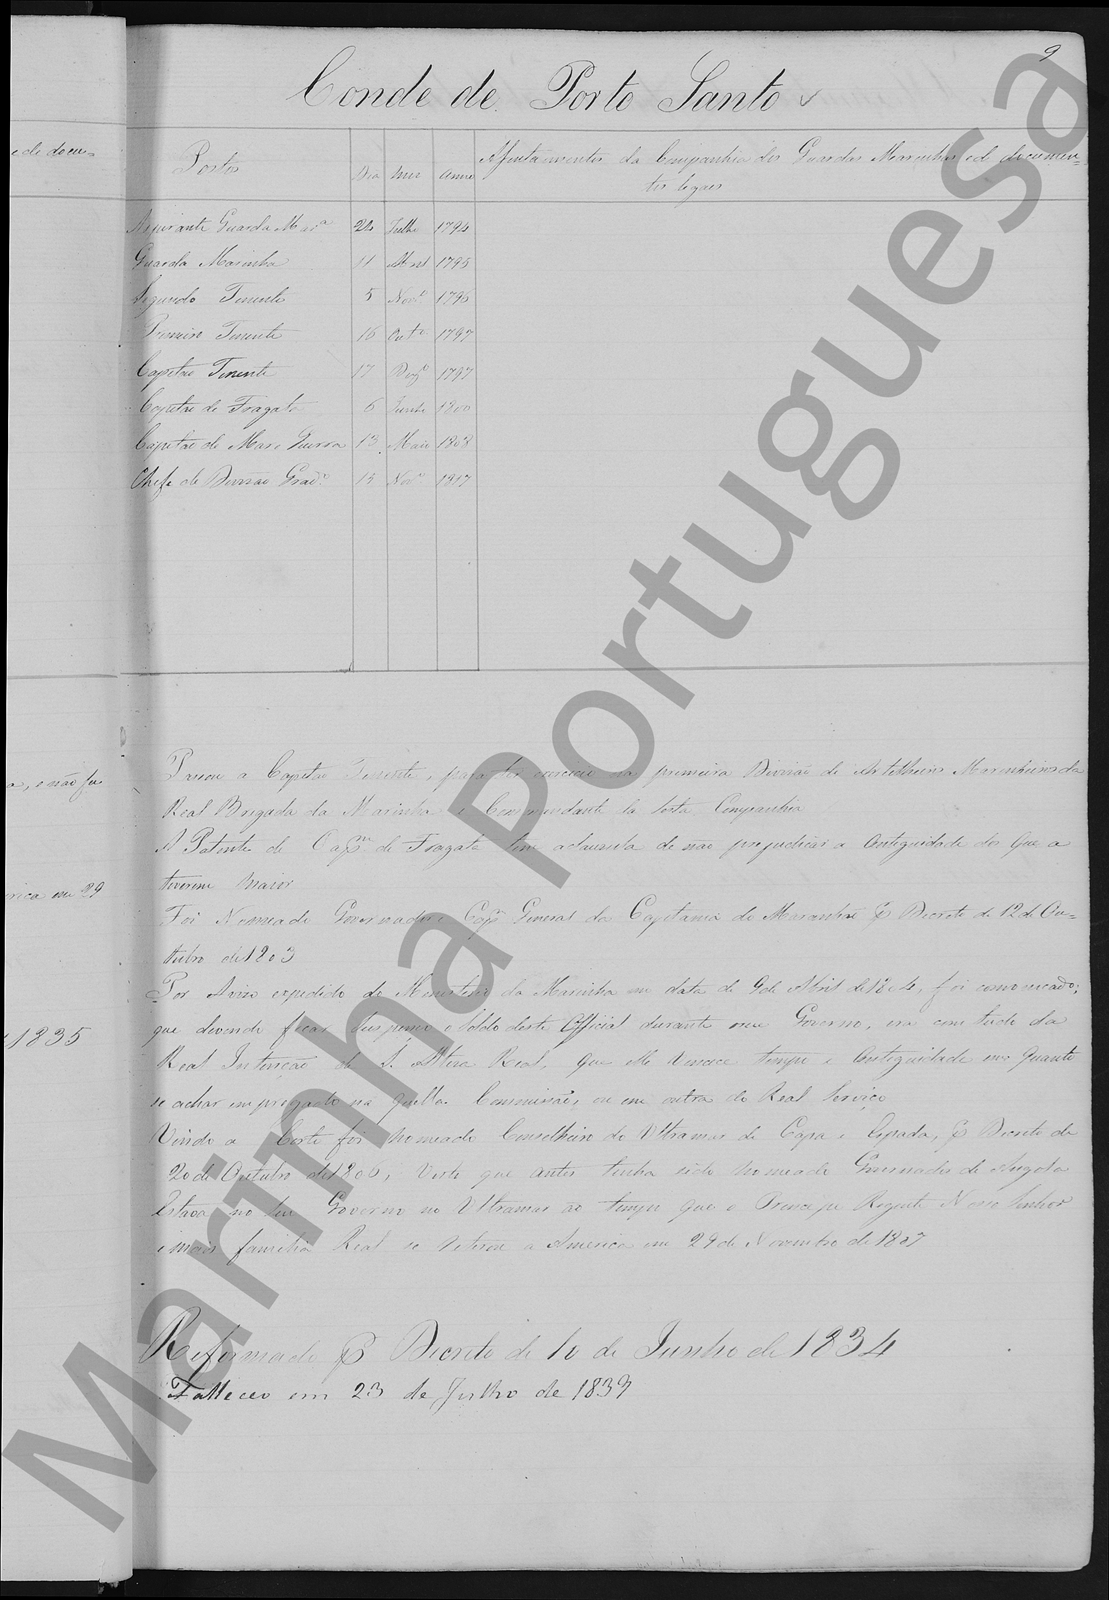 9
Conde de Porto Santo
e de docu=
Postos Dia Mez Anno Assentamentos da Companhia dos Guardas Marinhas e de documen=
tos legaes
Aspirante Guarda Mar.ª 24 Julho 1794
Guarda Marinha 11 Abril 1795
Segundo Tenente 5 Nov.º 1796
Primeiro Tenente 16 Out.º 1797
Capitão Tenente 17 Dez.º 1797
Capitão de Fragata 6 Junho 1800
Capitão de Mar e Guerra 13 Maio 1808
Chefe de Divisão Grad.º 15 Nov.º 1817
a, e não foi
Passou a Capitão Tenente, para ter exercicio na primeira Divisão de Artilheiros Marinheiros da
Real Brigada da Marinha e Commandante da sexta Companhia
A Patente de Cap.m de Fragata tem a clausula de não prejudicar a Antiguidade dos que a
tiverem maior
erica em 29
Foi Nomeado Governador e Cap.m General da Capitania do Maranhão P Decreto de 12 de Ou=
tubro de 1803
Por Aviso expedido do Ministerio da Marinha em data de 9 de Abril de 1804, foi comonicado;
que devendo ficar suspenso o Soldo deste Official durante o seu Governo, era com tudo da
1835
Real Intenção de S. Alteza Real, que elle Vencece tempo e Antiguidade em quanto
se achar empregado na quella Commissão, ou em outra do Real Serviço
Vindo a Corte foi nomeado Conselheiro do Ultramar de Capa e Espada, P Decreto de
20 de Outubro de 1806, Visto que antes tinha sido nomeado Governador de Angola
Estava no seu Governo no Ultramar ao tempo que o Principe Regente Nosso Senhor
e mais familia Real se retirou a America em 29 de Novembro de 1807
Reformado P Decreto de 10 de Junho de 1834
Falleceu em 23 de Julho de 1839
Marinha Portuguesa